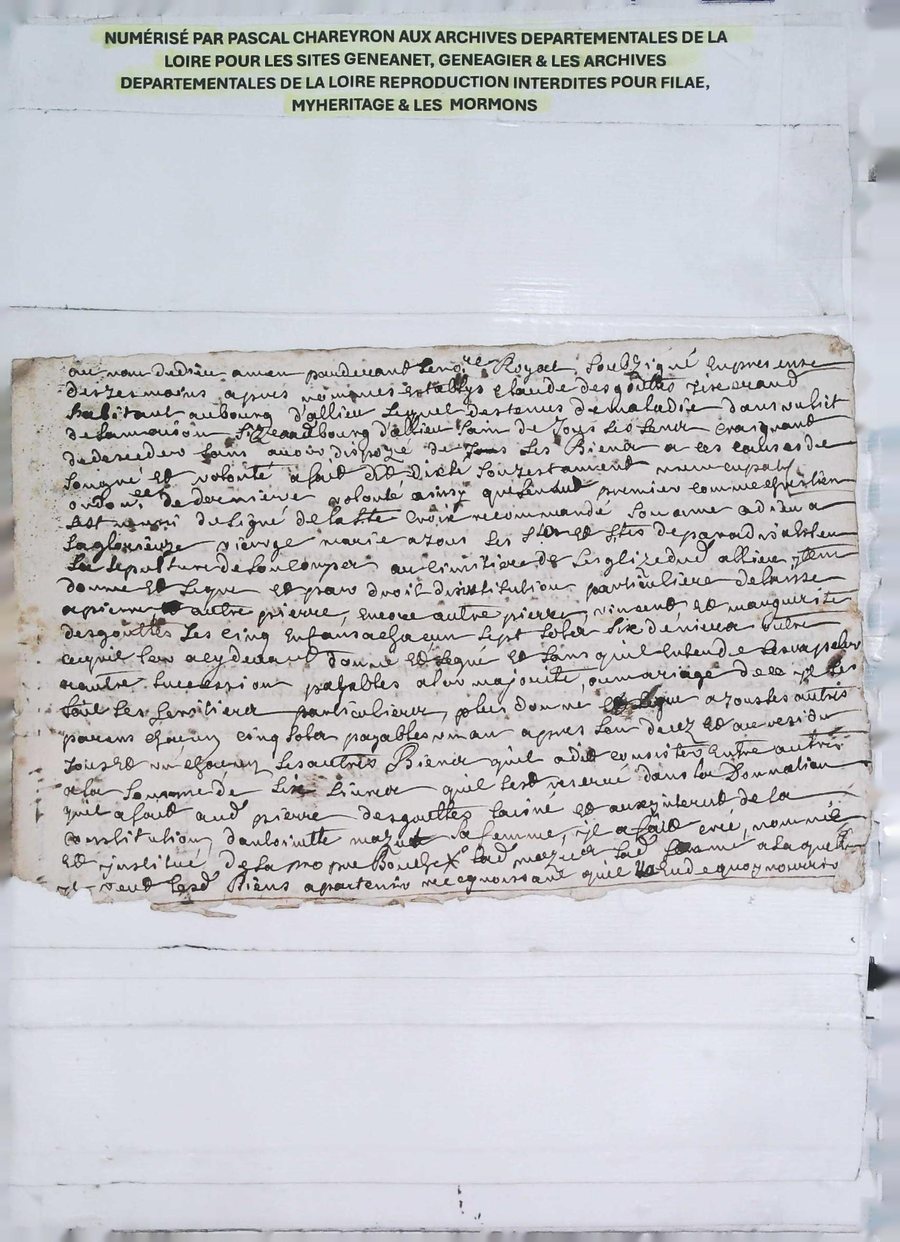 NUMÉRISÉ PAR PASCAL CHAREYRON AUX ARCHIVES DEPARTEMENTALES DE LA
LOIRE POUR LES SITES GENEANET, GENEAGIER & LES ARCHIVES
DEPARTEMENTALES DE LA LOIRE REPRODUCTION INTERDITES POUR FILAE,
MYHERITAGE & LES MORMONS
au nom de dieu amen pardevant le no.re Royal soubzigné en presence
des tesmoins apres nommés estably Claude desgouttes tixerand
habitant au bourg d'allieu lequel destenus de maladie dans un lict
de sa maison size aud bourg d'allieu sain de tous ses sens craignant
de deceder sans avoir dispozé de tous ses Biens a ces causes de
son gré et volonté a fait et dicté son testament nuncupatif
et de derniere volonté ainsy que sensuit premier comme chrestien
s'est muni du signé de la ste croix recommandé son ame a dieu a
la glorieuze vierge marie a tous les sts et stes de paradis
la sepulture de son corps au cimitiere de lesglize dud allieu Item
donne et legue et par droit d'institution particuliere delaisse
a pierre autre pierre, encore autre pierre, vincent et marguerite
desgouttes ses cinq enfans a chacun sept sols six deniers outre
ce qu'il leur a cy devant donné et legué et sans qu'il entende
autre succession payables a leur majorité, ou mariage de ce il les
fait ses heritiers particuliers, plus donne et legue a tous ses autres
parens chacun cinq sols payables un an apres son decez et au residu
tous et un chacun ses autres Biens qu'il a dit consister entre autres
a la somme de six livres qu'il sest reservé dans la donnation
qu'il a fait aud pierre desgouttes laisné et aux interest de la
constitution d'antoinette sa femme, il a fait créé, nommée
et institué de sa propre Bouche lad sad femme a laquelle
il veut sesd Biens apartenir recognoissant qu'il de quoy nourrir